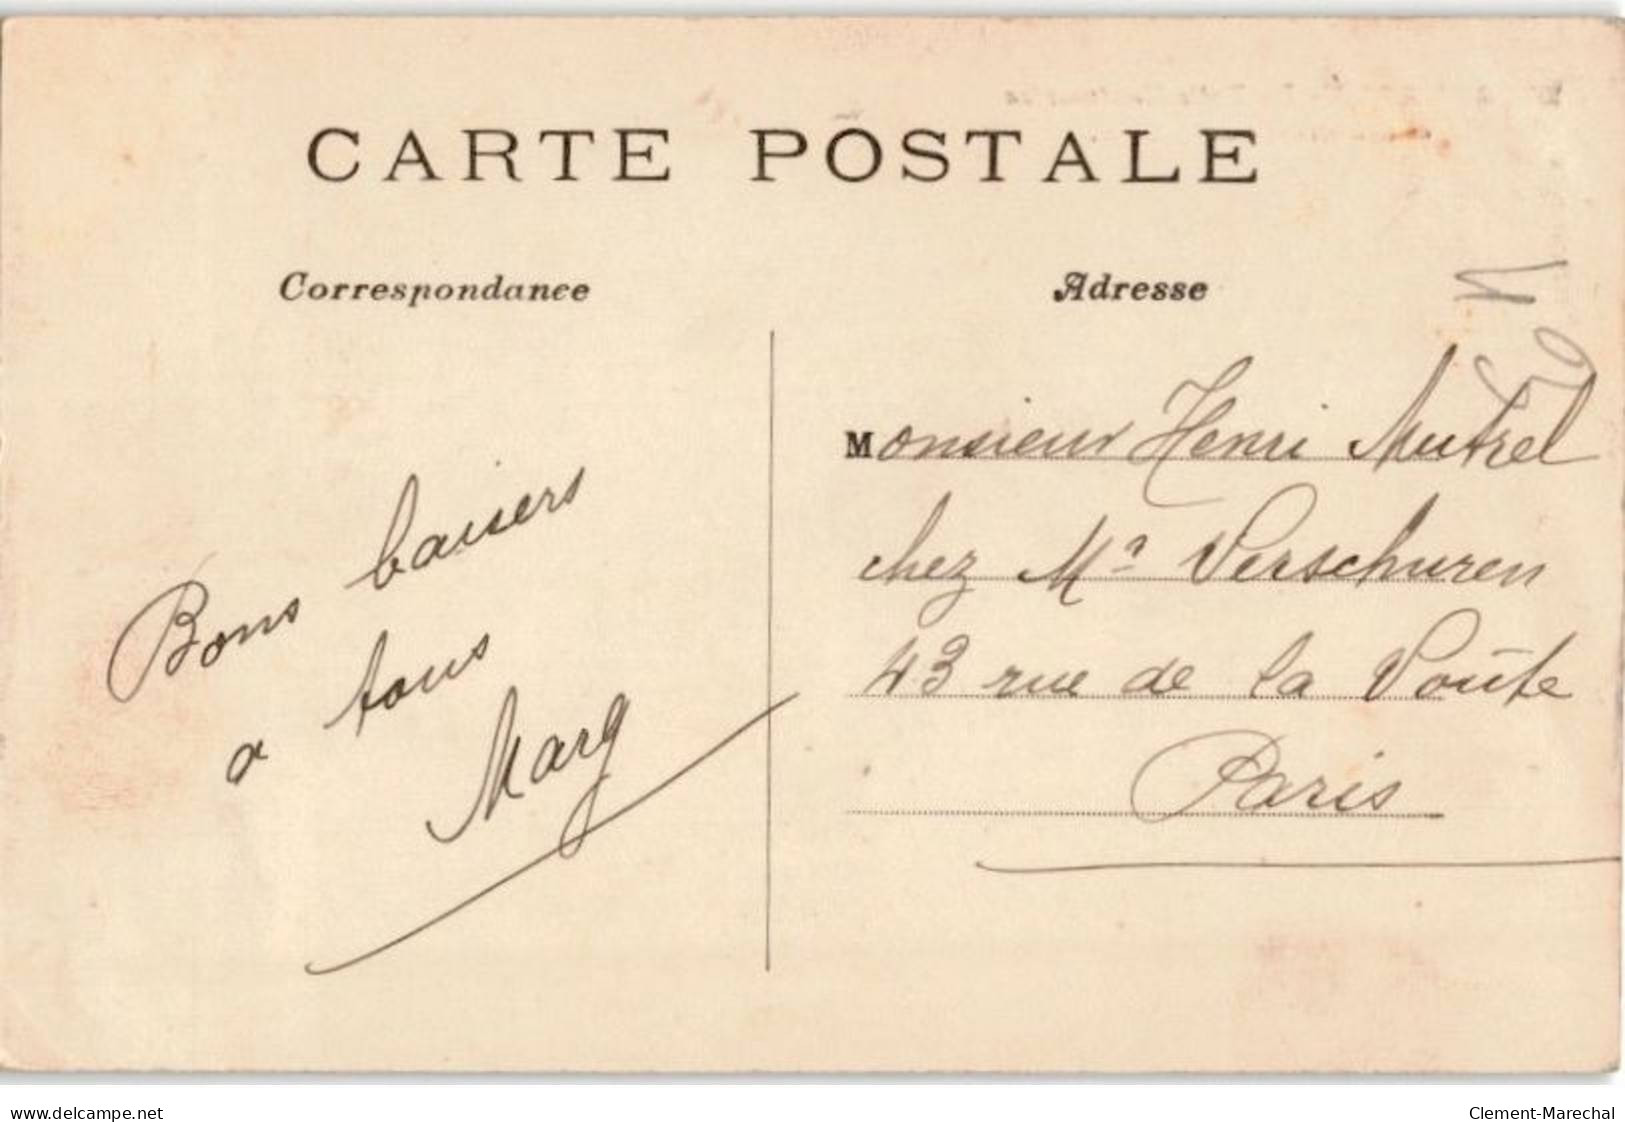 CARTE POSTALE
Correspondance
Adresse
Bons baisers
a tous
Marg
Monsieur Henri Mutrel
chez Mr Verschuren
43 rue de la Voûte
Paris
www.delcampe.net
Clement-Marechal